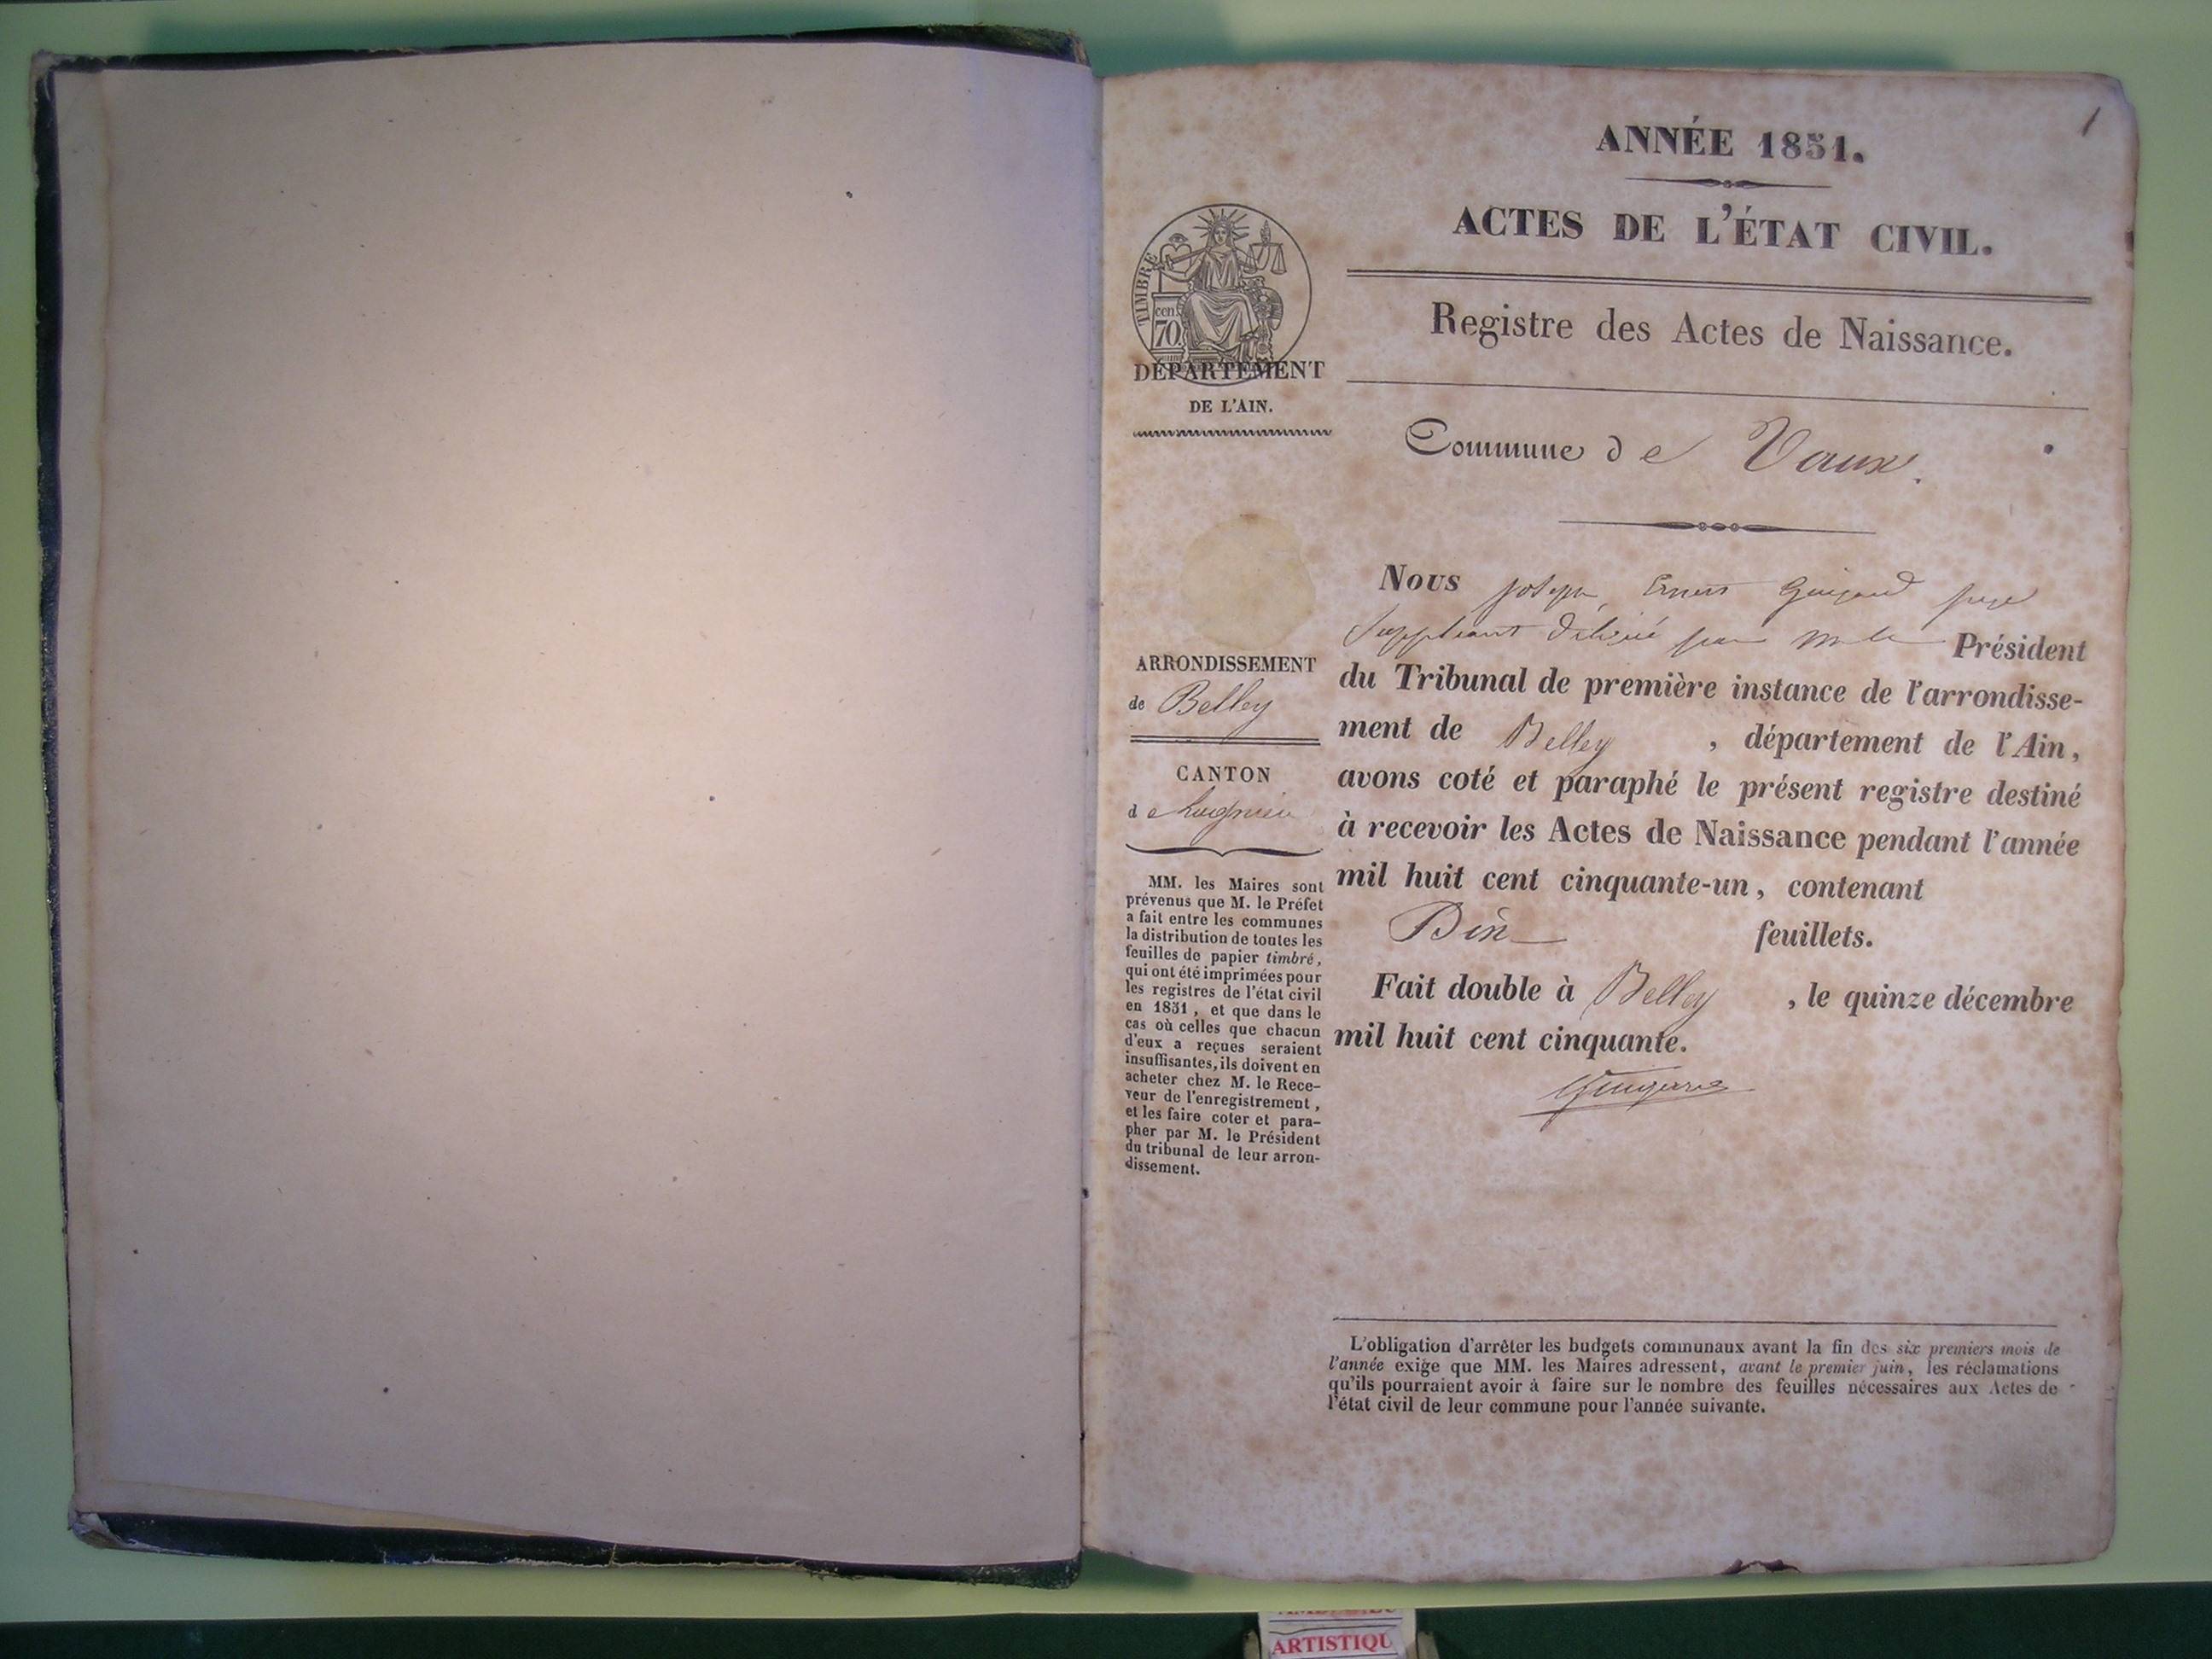 1
ANNÉE 1851.
ACTES DE L'ÉTAT CIVIL.
Registre des Actes de Naissance.
TIMBRE
cent
70
DÉPARTEMENT
DE L'AIN.
Commune de Vaux.
ARRONDISSEMENT
de Belley
CANTON
de Lagnieu
MM. les Maires sont
prévenus que M. le Préfet
a fait entre les communes
la distribution de toutes les
feuilles de papier timbré,
qui ont été imprimées pour
les registres de l'état civil
en 1851, et que dans le
cas où celles que chacun
d'eux a reçues seraient
insuffisantes, ils doivent en
acheter chez M. le Rece-
veur de l'enregistrement,
et les faire coter et para-
pher par M. le Président
du tribunal de leur arron-
dissement.
Nous Joseph Ernest juge
Suppléant délégué par M. le Président
du Tribunal de première instance de l'arrondisse-
ment de Belley, département de l'Ain,
avons coté et paraphé le présent registre destiné
à recevoir les Actes de Naissance pendant l'année
mil huit cent cinquante-un, contenant
Dix feuillets.
Fait double à Belley, le quinze décembre
mil huit cent cinquante.
L'obligation d'arrêter les budgets communaux avant la fin des six premiers mois de
l'année exige que MM. les Maires adressent, avant le premier juin, les réclamations
qu'ils pourraient avoir à faire sur le nombre des feuilles nécessaires aux Actes de
l'état civil de leur commune pour l'année suivante.
ARTISTIQU